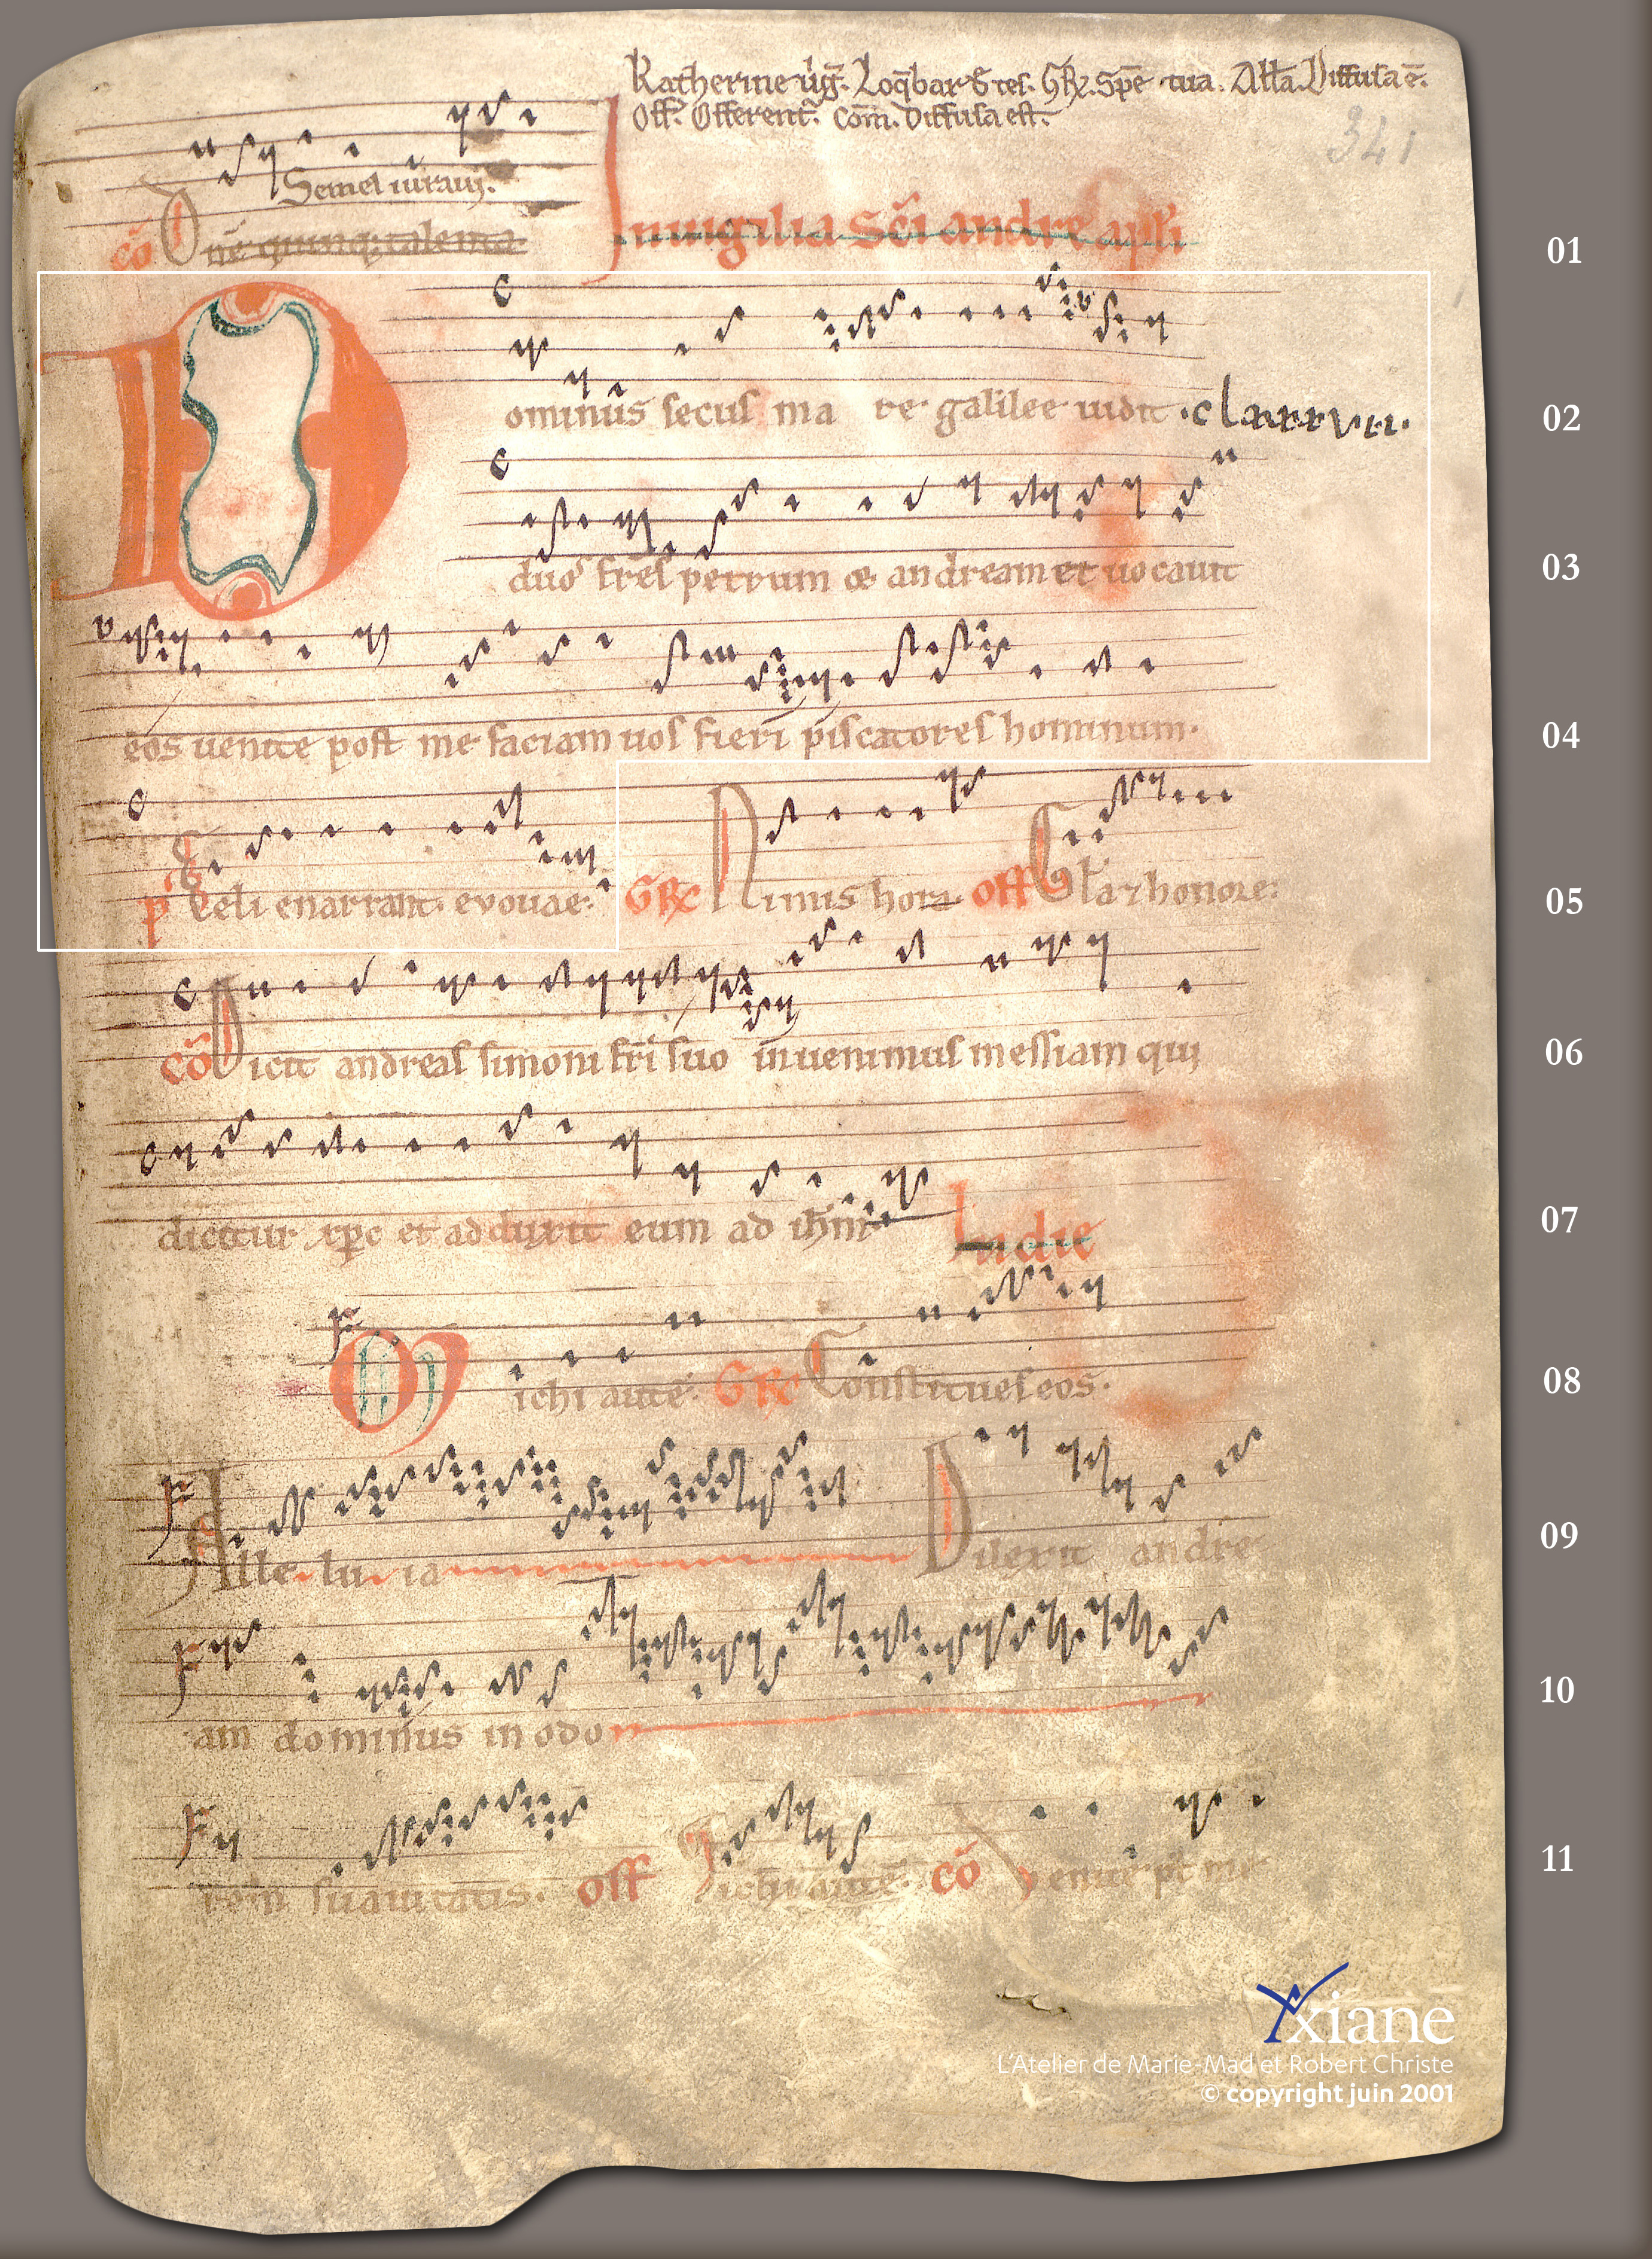 Katherine uig̅. Loq̅bar & tes. GR̅. Spe̅ tua. All̅a. Diffusa e̅.
Off̅. Offerent̅. Com̅. Diffusa est.
341
Semel iuraui.
co̅ D ne̅ quinq; talenta
In uigilia sc̅i andree apl̅i
01
ominus secus mare galilee uidit .clarrvrr.
02
duos fr̅es petrum & andream et uocauit
03
eos uenite post me faciam uos fieri piscatores hominum.
04
p̅s Celi enarrant. evouae. GR̅ Nimis hora. off Gl̅a & honore.
05
co̅ Dicit andreas simoni fr̅i suo inuenimus messiam qui
06
dicitur xp̅c et adduxit eum ad ih̅m In die
07
Michi aute̅. GR̅ Constitues eos.
08
Alle.lu.ia Dilexit andre
09
am dominus in odo
10
rem suauitatis. off Michi aute̅. co̅ Uenite p̅t me
11
xiane
L'Atelier de Marie-Mad et Robert Christe
© copyright juin 2001